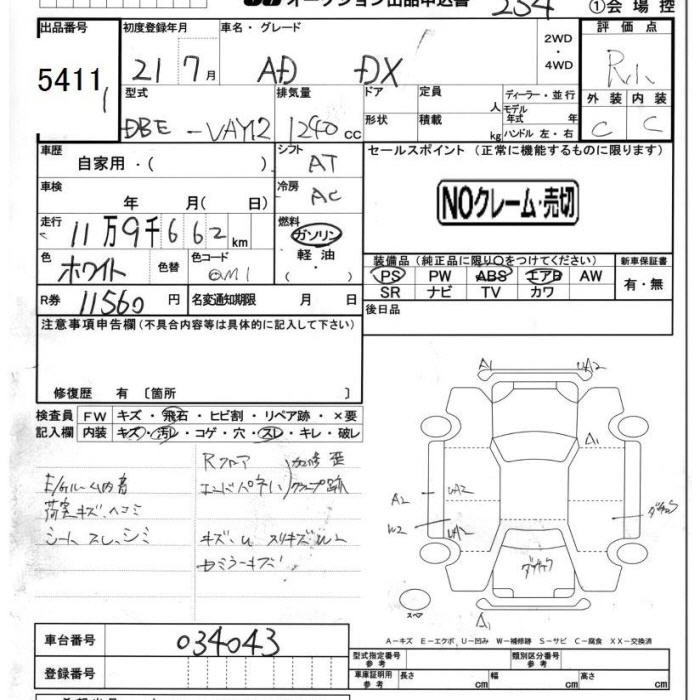 オークション出品申込書 254 ①会場控
出品番号 初度登録年月 車名・グレード 2WD・4WD 評価点
5411 21 7月 AD DX R
外装 内装
C C
型式 排気量 ドア 定員 人 ディーラー・並行
DBE-VAY12 1240cc 形状 積載 kg モデル年式 年
ハンドル 左・右
車歴 自家用・( ) シフト AT セールスポイント (正常に機能するものに限ります)
車検 年 月( 日) 冷房 AC
NOクレーム・売切
走行 11万9千662km 燃料 ガソリン
軽油
( ・ )
色 ホワイト 色替 色コード
装備品 (純正品に限り○をつけてください) 新車保証書
PS PW ABS エアB AW 有・無
SR ナビ TV カワ
R券 11560円 名変通知期限 月 日
後日品
注意事項申告欄 (不具合内容等は具体的に記入して下さい)
修復歴 有 〔箇所 〕
検査員 FW キズ・飛石・ヒビ割・リペア跡・×要
記入欄 内装 キズ・汚レ・コゲ・穴・スレ・キレ・破レ
Rフロア 加修 歪
荷室キズ、ヘコミ
シート スレ、シミ
キズ、U スリキズ
ミラーキズ
A1 UA2
A1
A2 UA2
W2 UA2
A1
スペア
A-キズ E-エクボ U-凹み W-補修跡 S-サビ C-腐食 XX-交換済
車台番号 034043
登録番号
型式指定番号 参考 類別区分番号 参考
車庫証明用 参考 長さ cm 幅 cm 高さ cm